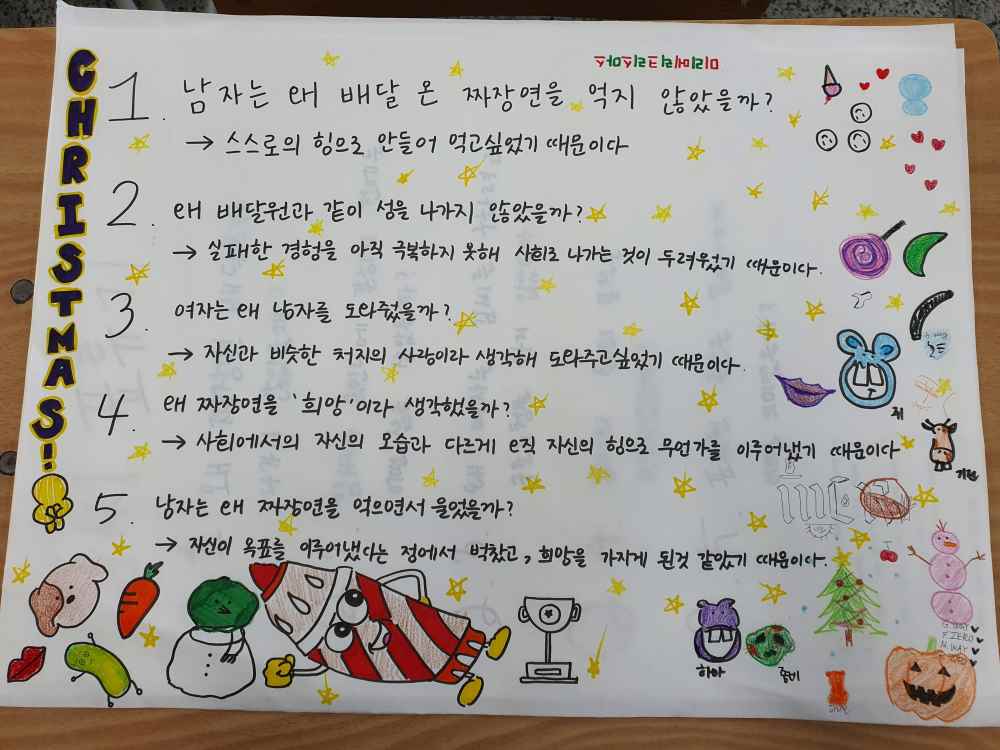 CHRISTMAS!
미리메리크리스마스
1. 남자는 왜 배달 온 짜장면을 먹지 않았을까?
→ 스스로의 힘으로 만들어 먹고싶었기 때문이다
2. 왜 배달원과 같이 섬을 나가지 않았을까?
→ 실패한 경험을 아직 극복하지 못해 사회로 나가는 것이 두려웠기 때문이다.
3. 여자는 왜 남자를 도와줬을까?
→ 자신과 비슷한 처지의 사람이라 생각해 도와주고싶었기 때문이다.
4. 왜 짜장면을 '희망'이라 생각했을까?
→ 사회에서의 자신의 모습과 다르게 오직 자신의 힘으로 무언가를 이루어냈기 때문이다
5. 남자는 왜 짜장면을 먹으면서 울었을까?
→ 자신이 목표를 이루어냈다는 점에서 벅찼고, 희망을 가지게 된것 같았기 때문이다.
쥐
기린
하마
좀비
F.ZERO
N.WAY